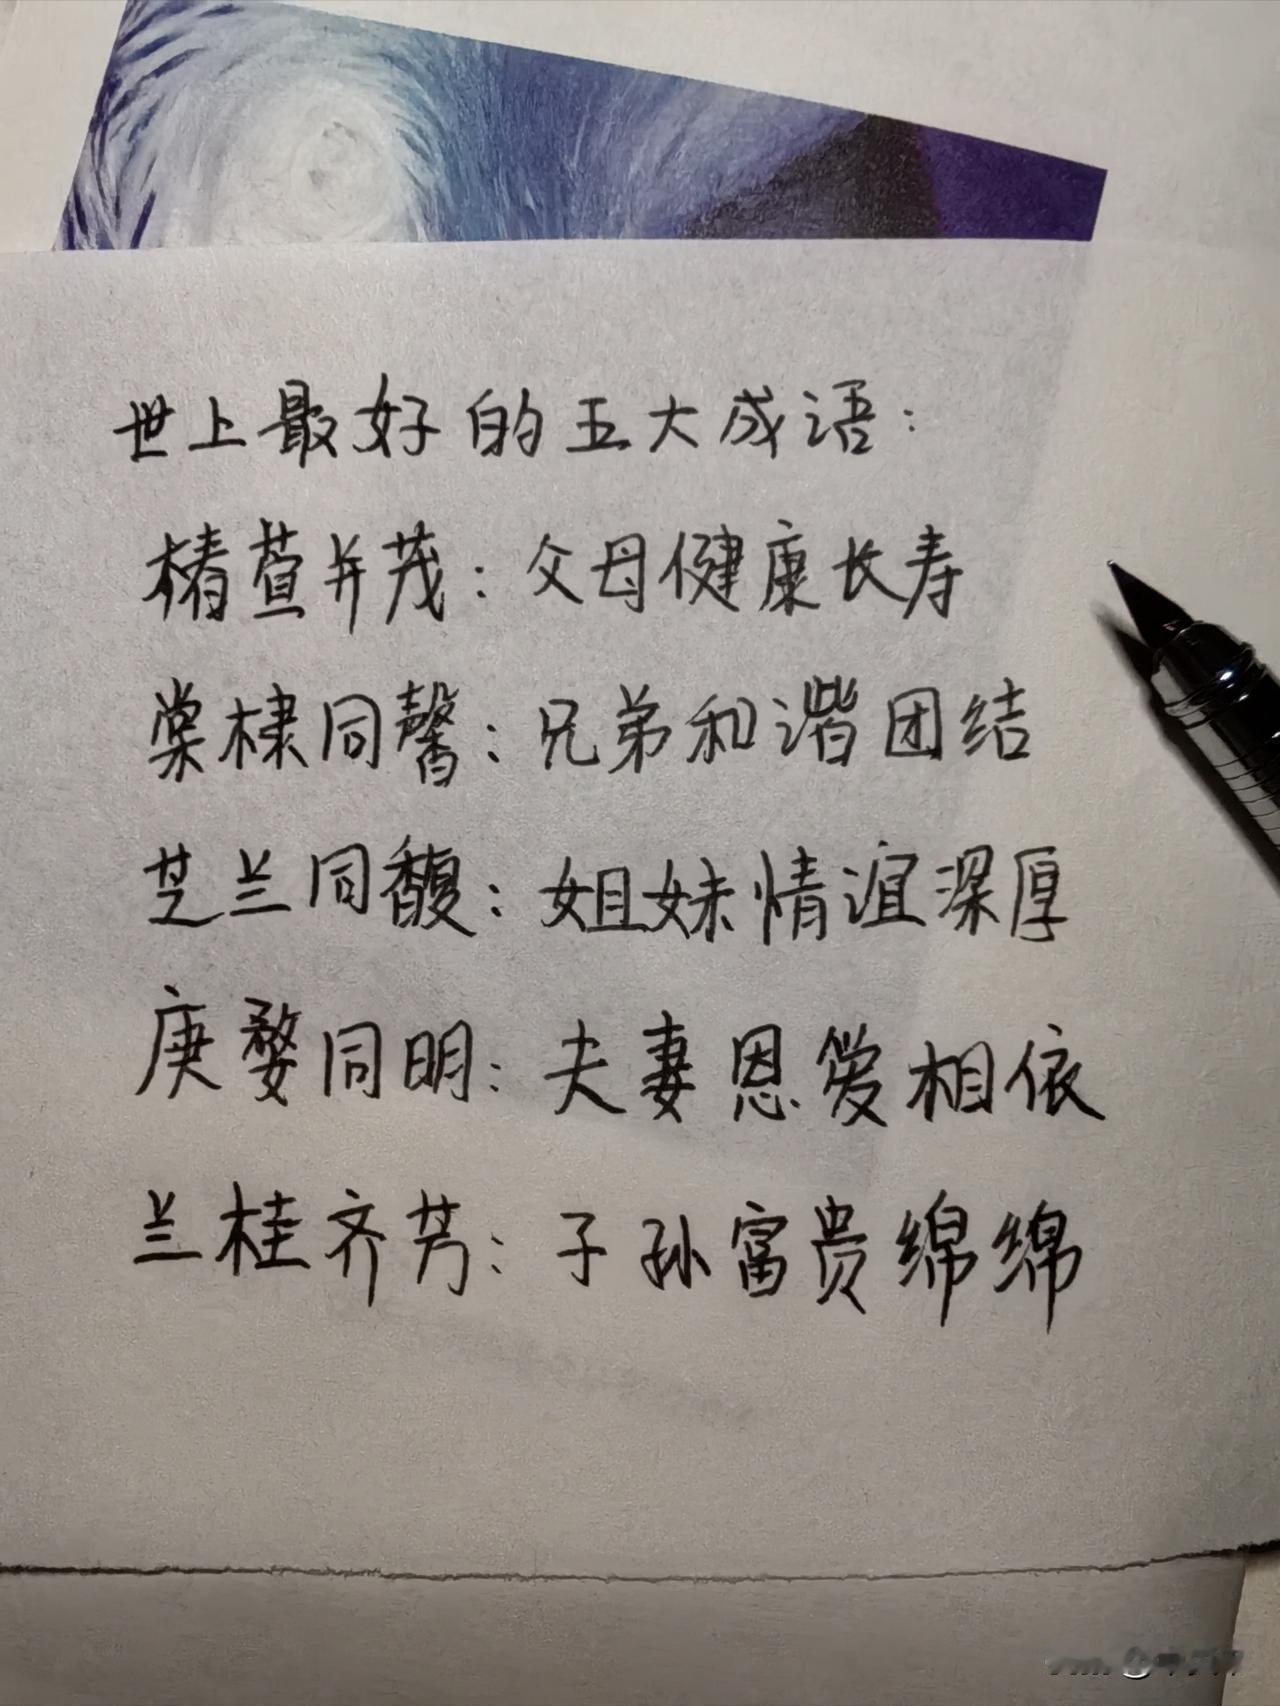 世上最好的五大成语：
椿萱并茂：父母健康长寿
棠棣同馨：兄弟和谐团结
芝兰同馥：姐妹情谊深厚
庚婺同明：夫妻恩爱相依
兰桂齐芳：子孙富贵绵绵